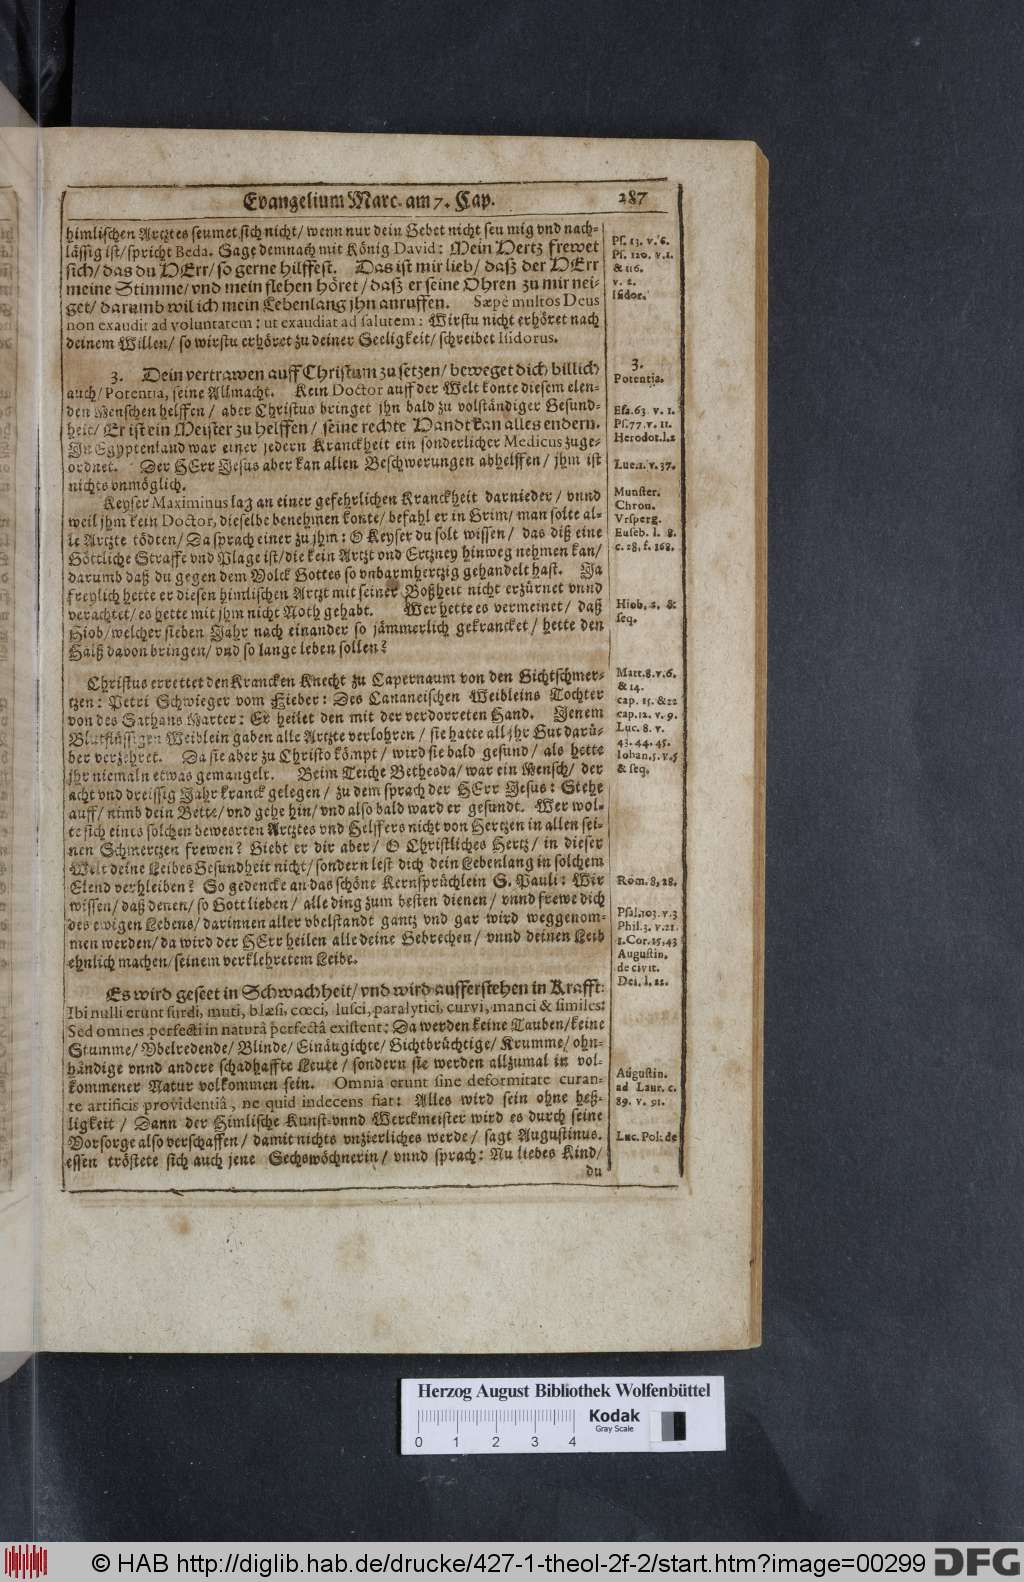 Evangelium Marc. am 7. Cap.
287
himlischen Artztes seumet sich nicht/ wenn nur dein Gebet nicht seumig vnd nach-
lässig ist/ spricht Beda. Sage demnach mit König David: Mein Hertz frewet
sich/ das du HErr/ so gerne hilffest. Das ist mir lieb/ daß der HErr
meine Stimme/ vnd mein flehen höret/ daß er seine Ohren zu mir nei-
get/ darumb wil ich mein Lebenlang jhn anruffen. Sæpè multos Deus
non exaudit ad voluntatem: ut exaudiat ad salutem: Wirstu nicht erhöret nach
deinem Willen/ so wirstu erhöret zu deiner Seeligkeit/ schreibet Isidorus.
3. Dein vertrawen auff Christum zu setzen/ beweget dich billich
auch/ Potentia, seine Allmacht. Kein Doctor auff der Welt konte diesem elen-
den Menschen helffen/ aber Christus bringet jhn bald zu volständiger Gesund-
heit/ Er ist ein Meister zu helffen/ seine rechte Handt kan alles endern.
In Egyptenland war einer jedern Kranckheit ein sonderlicher Medicus zuge-
ordnet. Der HErr Jesus aber kan allen Beschwerungen abhelffen/ jhm ist
nichts vnmöglich.
Keyser Maximinus lag an einer gefehrlichen Kranckheit darnieder/ vnnd
weil jhm kein Doctor, dieselbe benehmen konte/ befahl er in Grim/ man solte al-
le Artzte tödten/ Da sprach einer zu jhm: O Keyser du solt wissen/ das diß eine
Göttliche Straffe vnd Plage ist/ die kein Artzt vnd Ertzney hinweg nehmen kan/
darumb daß du gegen dem Volck Gottes so vnbarmhertzig gehandelt hast. Ja
freylich hette er diesen himlischen Artzt mit seiner Boßheit nicht erzürnet vnnd
verachtet/ es hette mit jhm nicht Noth gehabt. Wer hette es vermeinet/ daß
Hiob/ welcher sieben Jahr nach einander so jämmerlich gekrancket/ hette den
Halß davon bringen/ vnd so lange leben sollen?
Christus errettet den Krancken Knecht zu Capernaum von den Gichtschmer-
tzen: Petri Schwieger vom Fieber: Des Cananeischen Weibleins Tochter
von des Sathans Marter: Er heilet den mit der verdorreten Hand. Jenem
Blutflüssigen Weiblein gaben alle Artzte verlohren/ sie hatte all jhr Gut darü-
ber verzehret. Da sie aber zu Christo kömpt/ wird sie bald gesund/ als hette
jhr niemaln etwas gemangelt. Beim Teiche Bethesda/ war ein Mensch/ der
acht vnd dreissig Jahr kranck gelegen/ zu dem sprach der HErr Jesus: Stehe
auff/ nimb dein Bette/ vnd gehe hin/ vnd also bald ward er gesundt. Wer wol-
te sich eines solchen bewerten Artztes vnd Helffers nicht von Hertzen in allen sei-
nen Schmertzen frewen? Giebt er dir aber/ O Christliches Hertz/ in dieser
Welt deine Leibes Gesundheit nicht/ sondern lest dich dein Lebenlang in solchem
Elend verbleiben? So gedencke an das schöne Kernsprüchlein S. Pauli: Wir
wissen/ daß denen/ so Gott lieben/ alle ding zum besten dienen/ vnnd frewe dich
des ewigen Lebens/ darinnen aller vbelstandt gantz vnd gar wird weggenom-
men werden/ da wird der HErr heilen alle deine Gebrechen/ vnnd deinen Leib
ehnlich machen/ seinem verklehretem Leibe.
Es wird geseet in Schwachheit/ vnd wird aufferstehen in Krafft:
Ibi nulli erunt surdi, muti, blæsi, cœci, lusci, paralytici, curvi, manci & similes:
Sed omnes perfecti in naturâ perfectâ existent: Da werden keine Tauben/ keine
Stumme/ Vbelredende/ Blinde/ Einäugichte/ Gichtbrüchtige/ Krumme/ ohn-
händige vnnd andere schadhaffte Leute/ sondern sie werden allzumal in vol-
kommener Natur volkommen sein. Omnia erunt sine deformitate curan-
te artificis providentiâ, ne quid indecens fiat: Alles wird sein ohne heß-
ligkeit/ Dann der Himlische Kunst vnnd Werckmeister wird es durch seine
Vorsorge also verschaffen/ damit nichts vnzierliches werde/ sagt Augustinus.
essen tröstete sich auch jene Sechswöchnerin/ vnnd sprach: Nu liebes Kind/
du
Ps. 13. v. 6.
Ps. 120. v. 1.
& 116.
v. 1.
Isidor.
3.
Potentia.
Esa. 63. v. 1.
Ps. 77. v. 11.
Herodot. l. 2
Luc. 1. v. 37.
Munster.
Chron.
Vrsperg.
Euseb. l. 8.
c. 28. f. 168.
Hiob. 2. &
seq.
Matt. 8. v. 6.
& 14.
cap. 15. & 22
cap. 12. v. 9.
Luc. 8. v.
43. 44. 45.
Iohan. 5. v. 5
& seq.
Rom. 8, 28.
Psal. 103. v. 3
Phil. 3. v. 21.
1. Cor. 15, 43
Augustin.
de civit.
Dei. l. 22.
Augustin.
ad Laur. c.
89. v. 91.
Luc. Pol: de
Herzog August Bibliothek Wolfenbüttel
Kodak
Gray Scale
0 1 2 3 4
© HAB http://diglib.hab.de/drucke/427-1-theol-2f-2/start.htm?image=00299
DFG